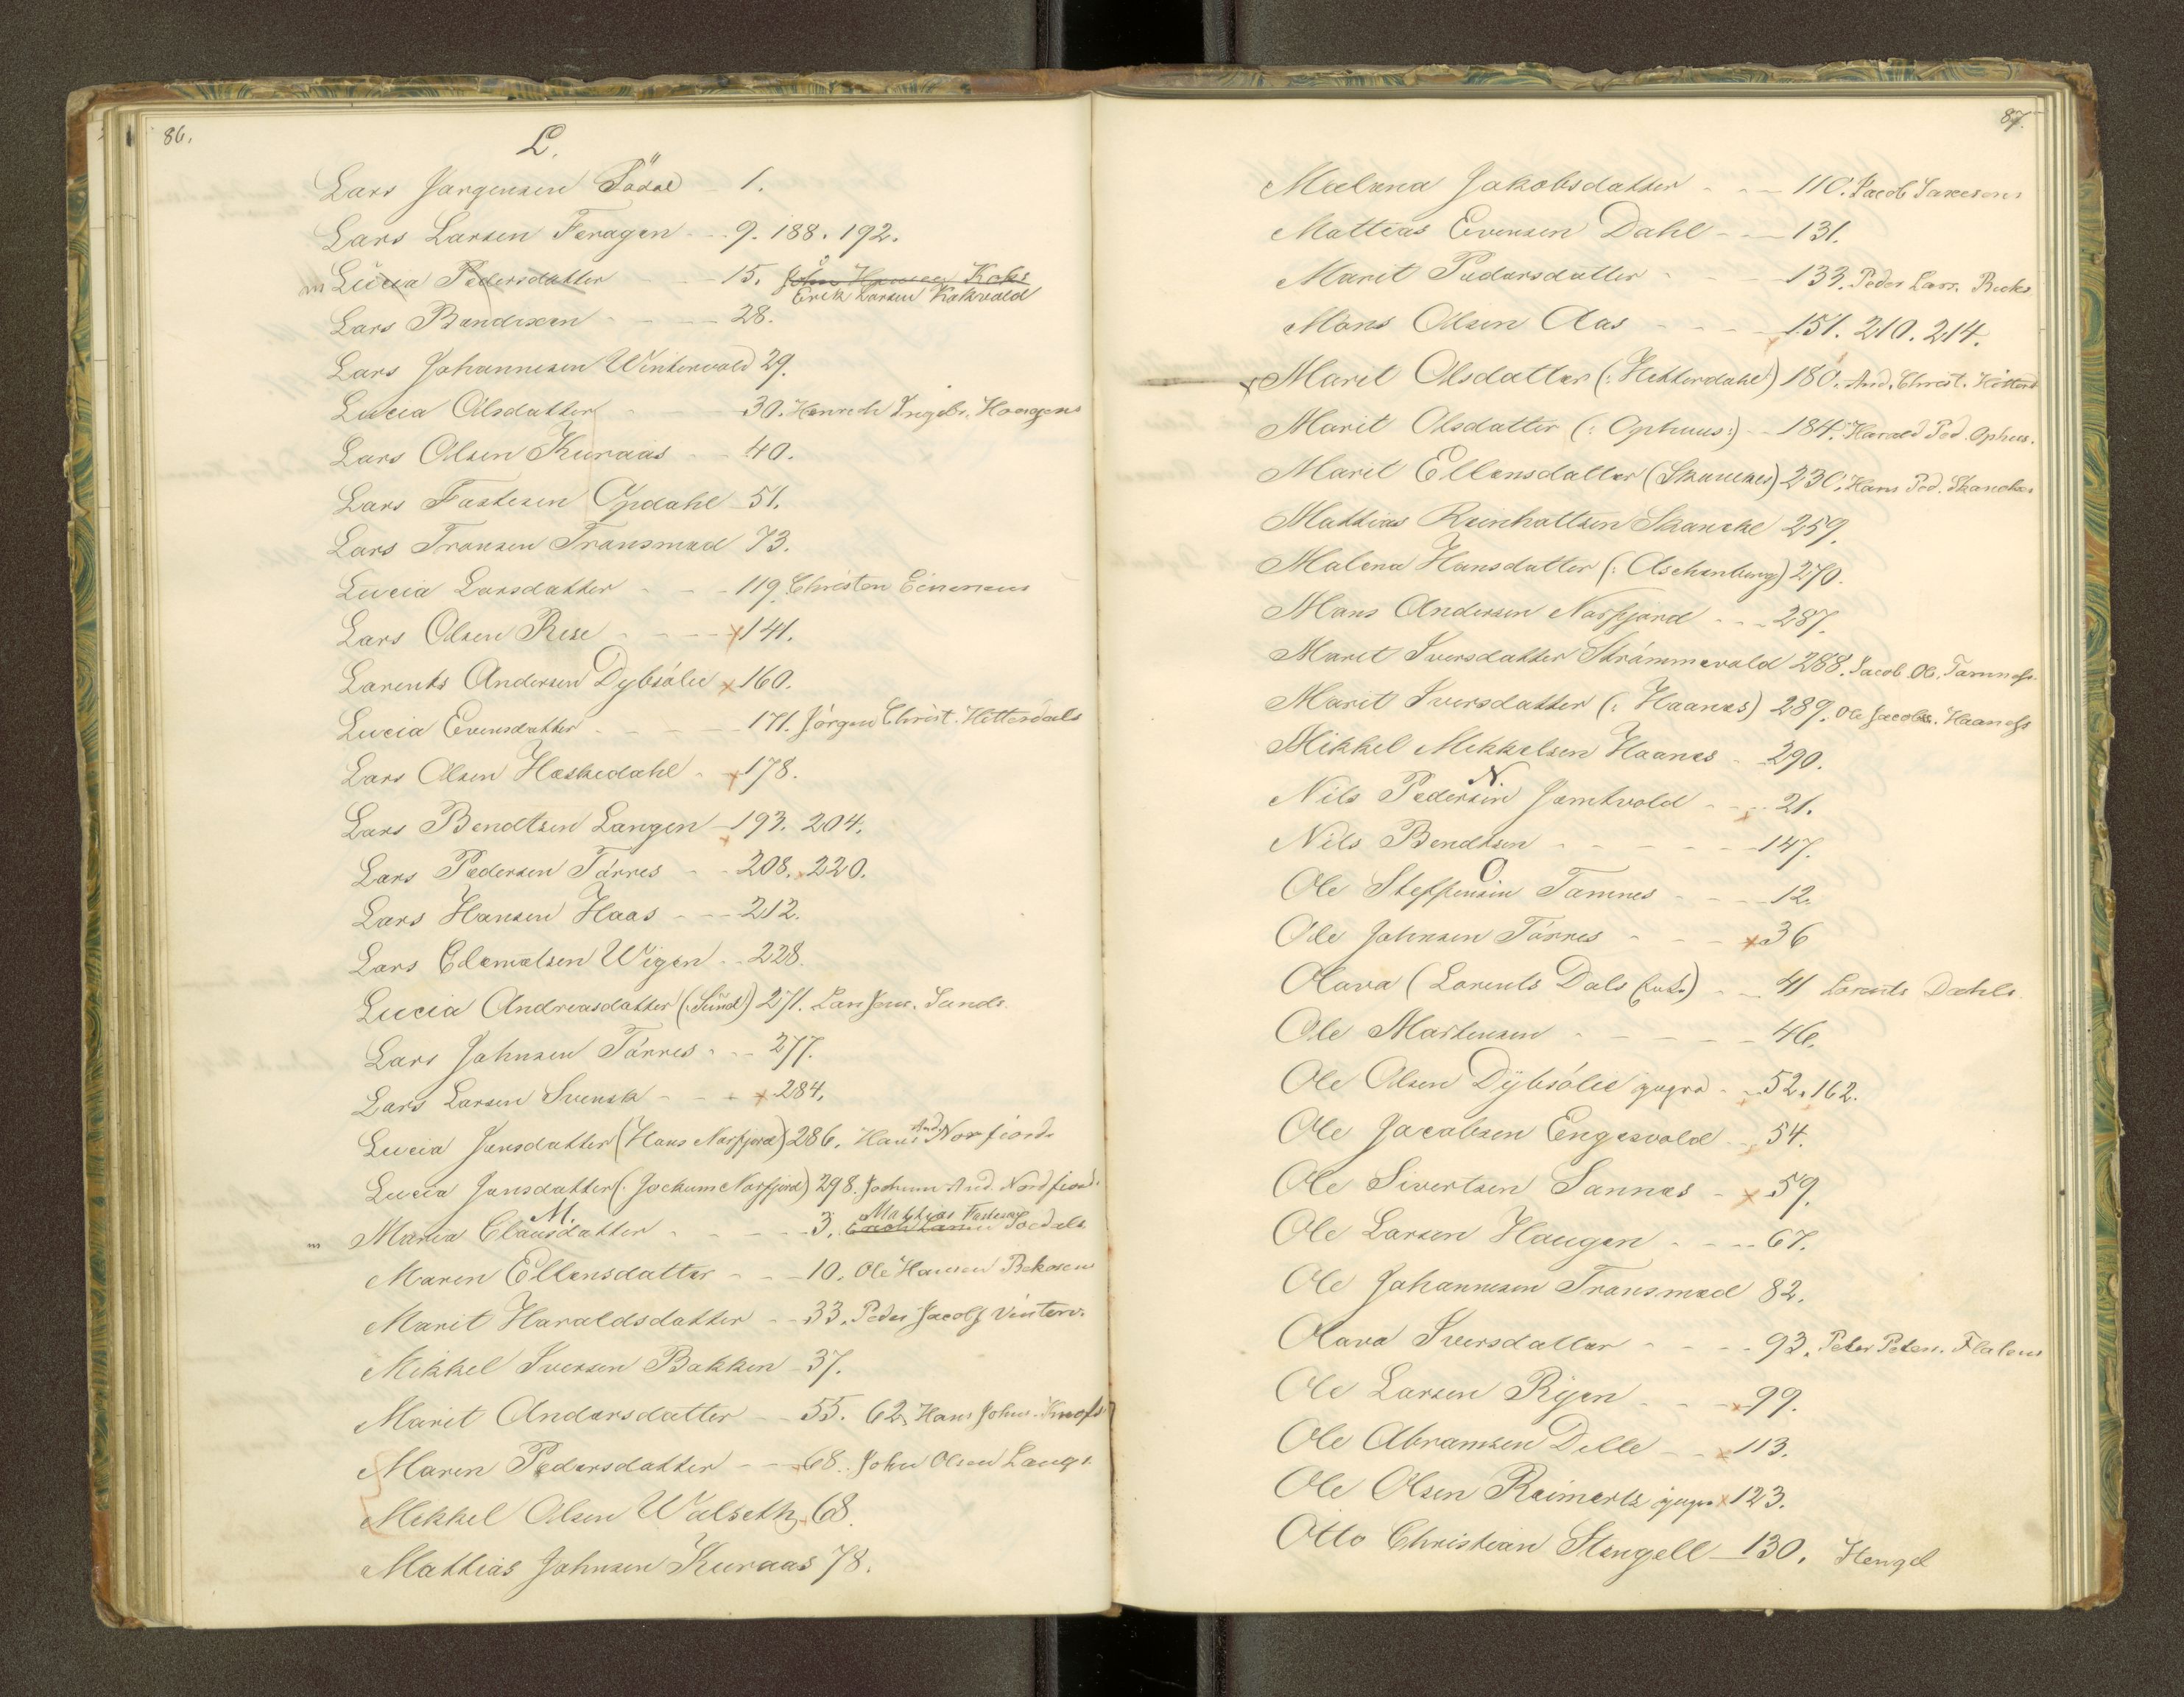 86.
L.
Lars Jørgensen Södal - 1.
Lars Larsen Feragen - - 9. 188. 192.
m Lucia Pedersdatter - - 15. John Hansen Koks
Erik Larsen Kokvold
Lars Bendixen - - - 28.
Lars Johannesen Wintervold 29.
Lucia Olsdatter - - - 30. Henrich Ingebr. Haagens
Lars Olsen Kuraas - - 40.
Lars Fastesen Opdahl - 51.
Lars Tronsen Tronsmed 73.
Lucia Larsdatter - - - 119. Christen Einersens
Lars Olsen Rise - - - x 141.
Larents Andersen Dybsólie x 160.
Lucia Evensdatter - - - 171. Jörgen Christ. Hitterdals
Lars Olsen Haskedahl - x 178.
Lars Bendtsen Langen - 193. 204.
Lars Pedersen Tórres - - 208. 220.
Lars Hansen Haas - - - 212.
Lars Edemalsen Wigen - - 228.
Lucia Andreasdatter (: Sund) 271. Lars Jens. Sunds
Lars Johnsen Tórres - - - 277.
Lars Larsen Svensk - - - x 284.
Lucia Jensdatter (Hans Norfjord) 286. Hans And. Norfiords
Lucia Jensdatter (: Jochum Norfjord) 298. Jochum And. Nordfiord.
M.
m Maria Clausdatter - - - 3. Erich Larsen Mathias Fastesen Soedals
Maren Ellensdatter - - - 10. Ole Hansen Bekosen
Marit Haraldsdatter - - 33. Peder Jacobs Winterv.
Mikkel Iversen Bakken - 37.
Marit Andersdatter - - 55. 62. Hans Johns.
Maren Pedersdatter - - - 68. John Olsen Langs
Mikkel Olsen Walseth 68.
Mathias Johnsen Kuraas 78.
87.
Malena Jakobsdatter - - - 110. Jacob
Mattias Evensen Dahl - - - 131.
Marit Pedersdatter - - - 133. Peder Lars.
Mons Olsen Aas - - - - 151. 210. 214.
x Marit Olsdatter (: Hitterdahl) 180. And. Christ. Hitterd
Marit Olsdatter (: Ophuus :) - - 184. Harald Ped. Ophus.
Marit Ellensdatter (Skanckes) 230. Hans Ped. Skanckes
Mathias Reinholtsen Skancke 259.
Malena Hansdatter (: Aschenberg) 270.
Mons Andersen Norfjord - - - 287.
Marit Iversdatter Strömmevold 288. Jacob Ol. Tamness.
Marit Iversdatter (: Haanes) 289. Ole Jacobs. Haaness
Mikkel Mikkelsen Haanes - 290.
N.
Nils Pedersen Jamtvold - - - 21.
Nils Bendtsen - - - - - - 147.
O.
Ole Steffensen Tamnes - - - 12.
Ole Johnsen Tórres - - - x 36
Olava (Lorents Dals Enke) - - 41 Lorents Dahls
Ole Mortensen - - - - - 46.
Ole Olsen Dÿbsólie yngre - - 52. 162.
Ole Jacobsen Engesvold - - 54.
Ole Sivertsen Sannes - x 59.
Ole Larsen Haugen - - - - 67.
Ole Johannesen Tronsmed 82.
Olava Iversdatter - - - - 93. Peter Peters. Flatens
Ole Larsen Rÿen - - - x 99.
Ole Abramsen Delle - - x 113.
Ole Olsen Reimerts yngre x 123.
Otto Christian Stengell - 130. Hengel